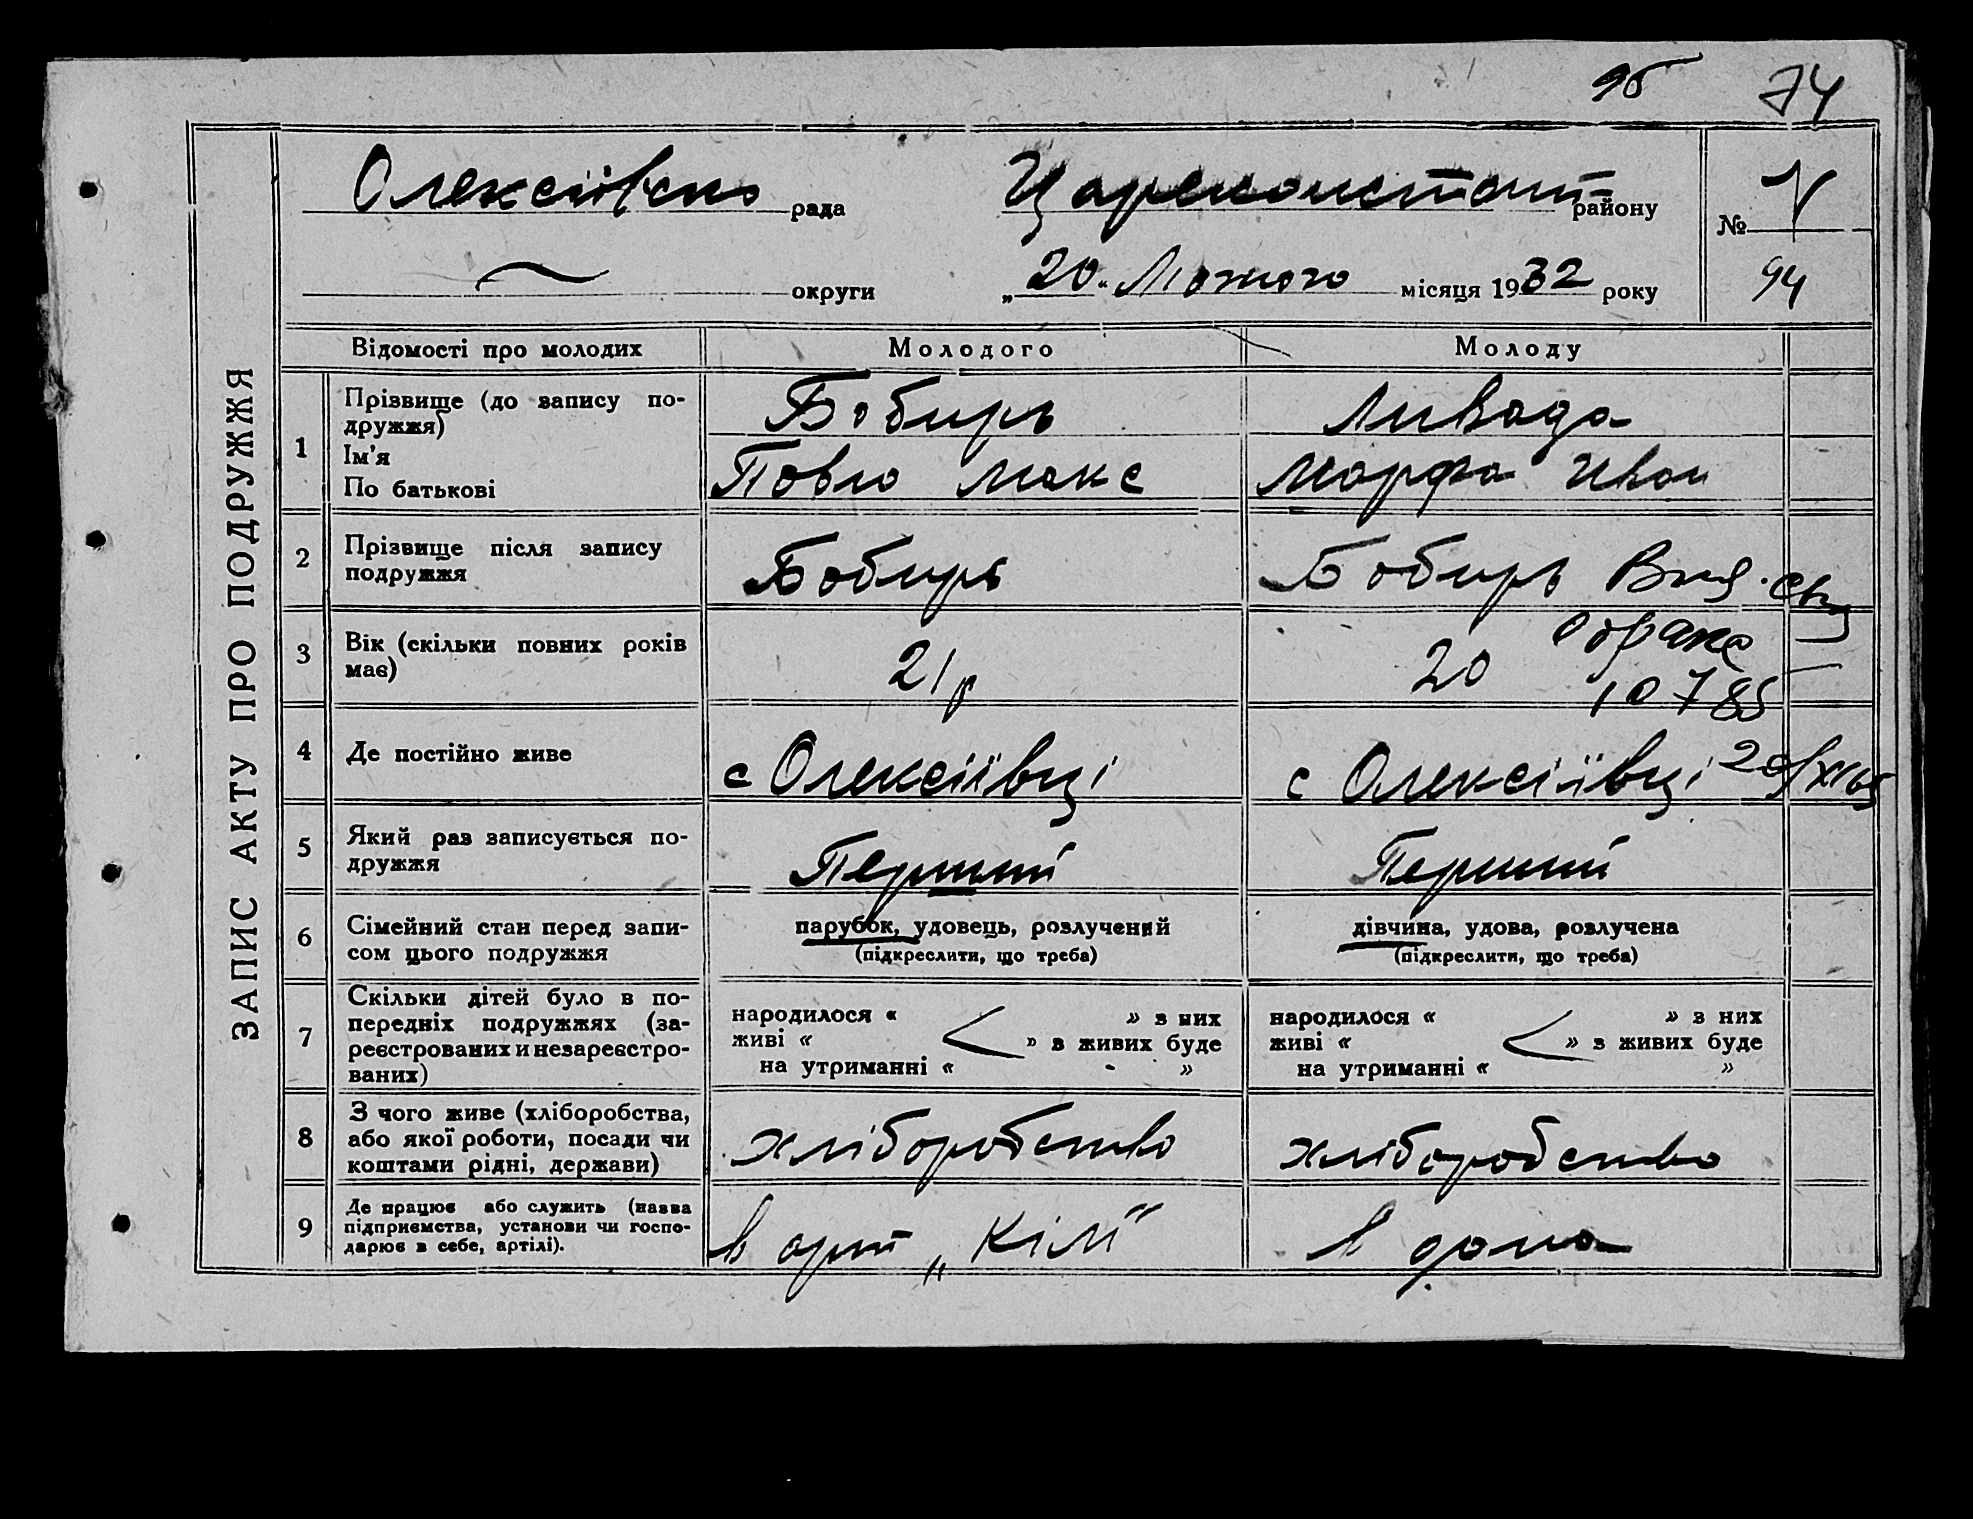 74
Олексіївська рада Цареконстант району №
округи „20“ Лютого місяця 1932 року 94
ЗАПИС АКТУ ПРО ПОДРУЖЖЯ
Відомості про молодих Молодого Молоду
1 Прізвище (до запису по-
дружжя) Бобирь Ливада
Ім'я
По батькові Повло Макс Марфа Иван
2 Прізвище після запису
подружжя Бобирь Бобирь
3 Вік (скільки повних років
має) 21р 20
10785
4 Де постійно живе с Олексіївці с Олексіївці
5 Який раз записується по-
дружжя Перший Перший
6 Сімейний стан перед запи-
сом цього подружжя
парубок, удовець, розлучений
(підкреслити, що треба)
дівчина, удова, розлучена
(підкреслити, що треба)
7 Скільки дітей було в по-
передніх подружжях (за-
реєстрованих и незареєстро-
ваних)
народилося « » з них
живі « » з живих буде
на утриманні « »
народилося « » з них
живі « » з живих буде
на утриманні « »
8 З чого живе (хліборобства,
або якої роботи, посади чи
коштами рідні, держави) хліборобство хліборобство
9 Де працює або служить (назва
підприємства, установи чи госпо-
дарює в себе, артілі). в арт „КІМ“ в дома